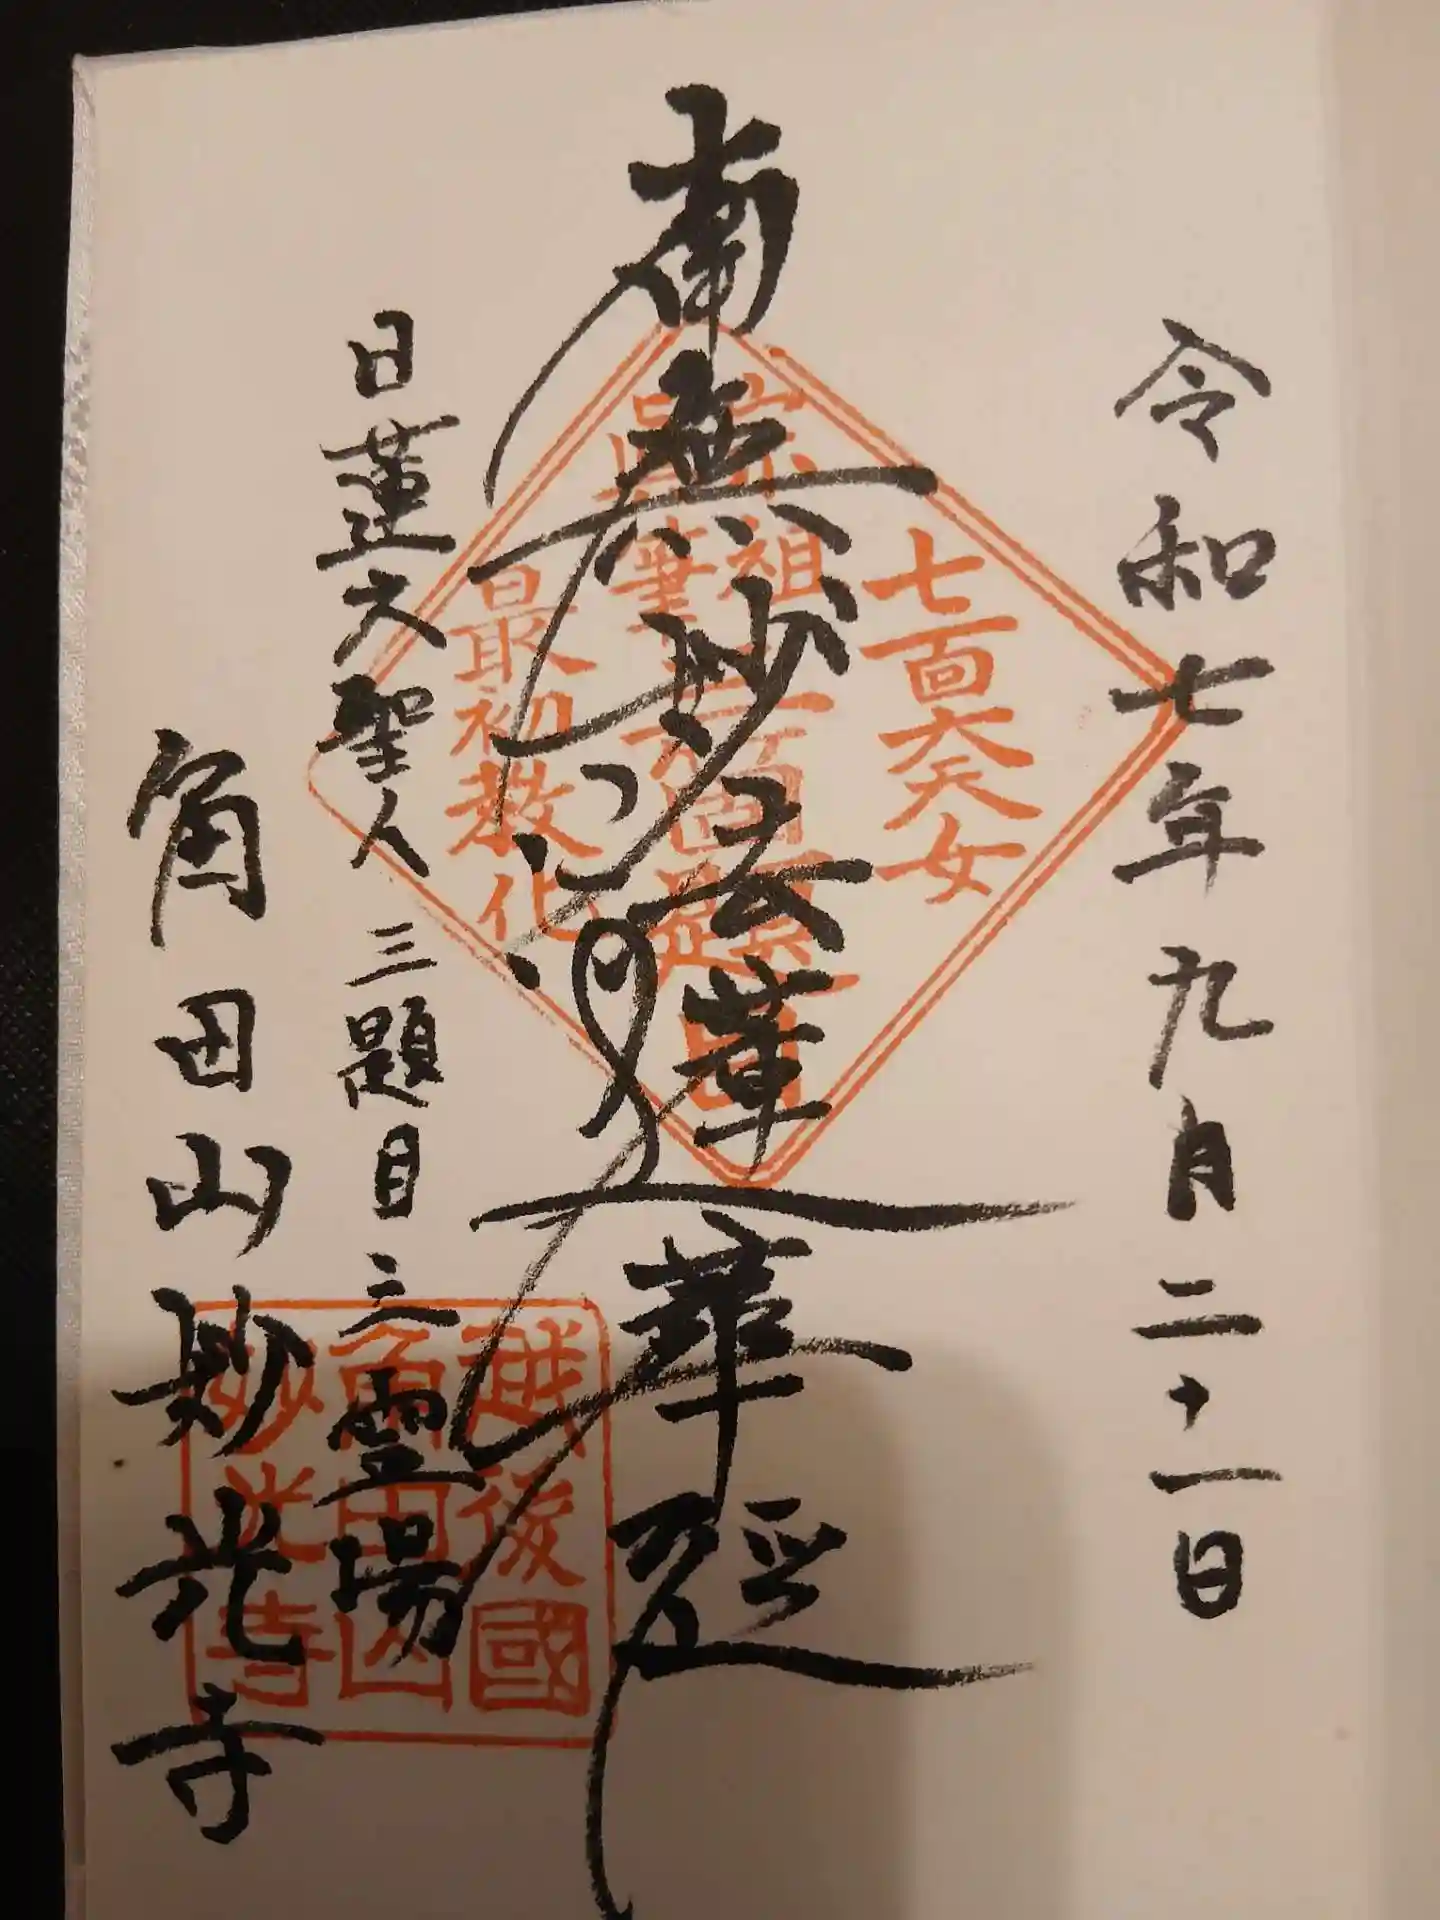 令和七年九月二十一日
南無妙法蓮華経
日蓮大聖人三題目之霊場
角田山妙光寺
七面大天女
宗祖
最初教化
越後國
角田山
妙光寺